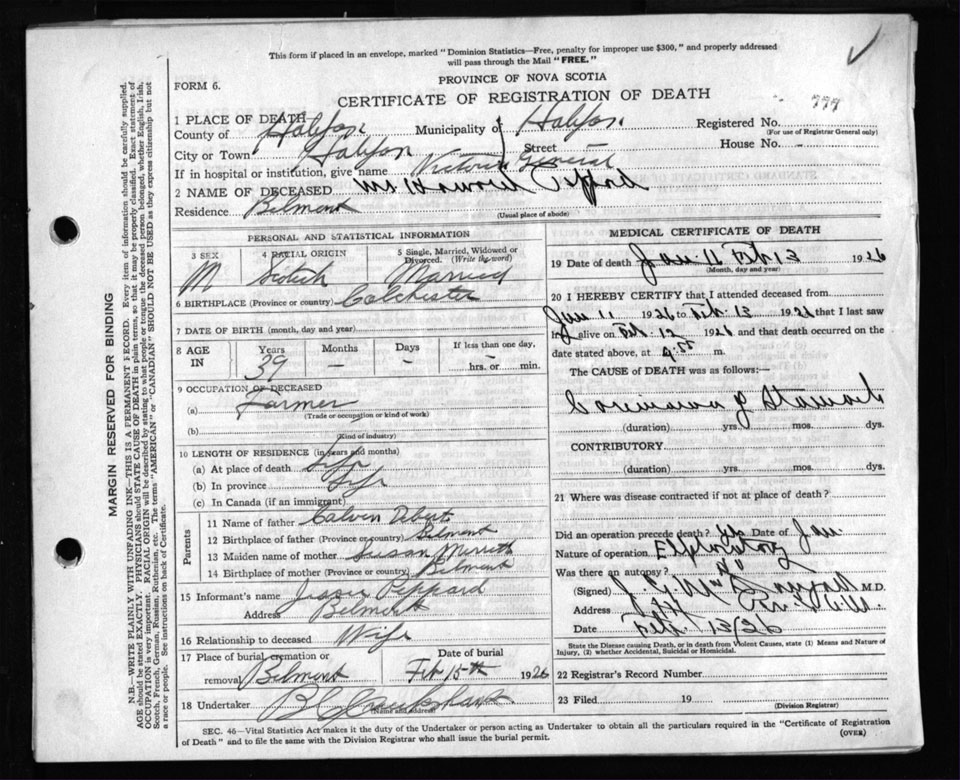 This form if placed in an envelope, marked "Dominion Statistics—Free, penalty for improper use $300," and properly addressed
will pass through the Mail "FREE."
PROVINCE OF NOVA SCOTIA
FORM 6.
CERTIFICATE OF REGISTRATION OF DEATH
777
1 PLACE OF DEATH
County of Halifax Municipality of Halifax Registered No.
(For use of Registrar General only)
City or Town Halifax Street House No. -
If in hospital or institution, give name Victoria General
2 NAME OF DECEASED Howard
Residence Belmont
(Usual place of abode)
PERSONAL AND STATISTICAL INFORMATION
3 SEX 4 RACIAL ORIGIN 5 Single, Married, Widowed or Divorced. (Write the word)
M Scotch Married
6 BIRTHPLACE (Province or country) Colchester
7 DATE OF BIRTH (month, day and year)
8 AGE IN Years Months Days If less than one day,
39 — — hrs. or min.
9 OCCUPATION OF DECEASED
(a) Farmer
(Trade or occupation or kind of work)
(b)
(Kind of industry)
10 LENGTH OF RESIDENCE (in years and months)
(a) At place of death Life
(b) In province Life
(c) In Canada (if an immigrant)
Parents
11 Name of father Calvin Debert
12 Birthplace of father (Province or country) Belmont
13 Maiden name of mother Susan
14 Birthplace of mother (Province or country) Belmont
15 Informant's name Peppard
Address Belmont
16 Relationship to deceased Wife
17 Place of burial, cremation or removal Belmont Date of burial Feb 15th 1926
18 Undertaker
(Name and address)
MEDICAL CERTIFICATE OF DEATH
19 Date of death Jan. 11 Feb 13 1926
(Month, day and year)
20 I HEREBY CERTIFY that I attended deceased from
Jan 11 1926 to Feb. 13 1926 that I last saw
alive on Feb. 12 1926 and that death occurred on
date stated above, at m.
The CAUSE of DEATH was as follows:—
Carcinoma of Stomach
(duration) yrs. mos. dys.
CONTRIBUTORY
(duration) yrs. mos. dys.
21 Where was disease contracted if not at place of death?
Did an operation precede death? Yes Date of Jan
Nature of operation Exploratory
Was there an autopsy? No
(Signed) M.D.
Address
Date Feb. 13/26
State the Disease causing Death, or in death from Violent Causes, state (1) Means and Nature of
Injury, (2) whether Accidental, Suicidal or Homicidal.
22 Registrar's Record Number
23 Filed 19
(Division Registrar)
SEC. 46—Vital Statistics Act makes it the duty of the Undertaker or person acting as Undertaker to obtain all the particulars required in the "Certificate of Registration
of Death" and to file the same with the Division Registrar who shall issue the burial permit. (OVER)
MARGIN RESERVED FOR BINDING
N.B.—WRITE PLAINLY WITH UNFADING INK—THIS IS A PERMANENT RECORD. Every item of information should be carefully supplied.
AGE should be stated EXACTLY. PHYSICIANS should STATE CAUSE OF DEATH in plain terms, so that it may be properly classified. Exact statement of
OCCUPATION is very important. RACIAL ORIGIN will be described by stating to what people or tongue the deceased person belonged, whether English, Irish,
Scotch, French, German, Russian, Ruthenian, etc. The terms "AMERICAN" or "CANADIAN" SHOULD NOT BE USED as they express citizenship but not
a race or people. See instructions on back of Certificate.